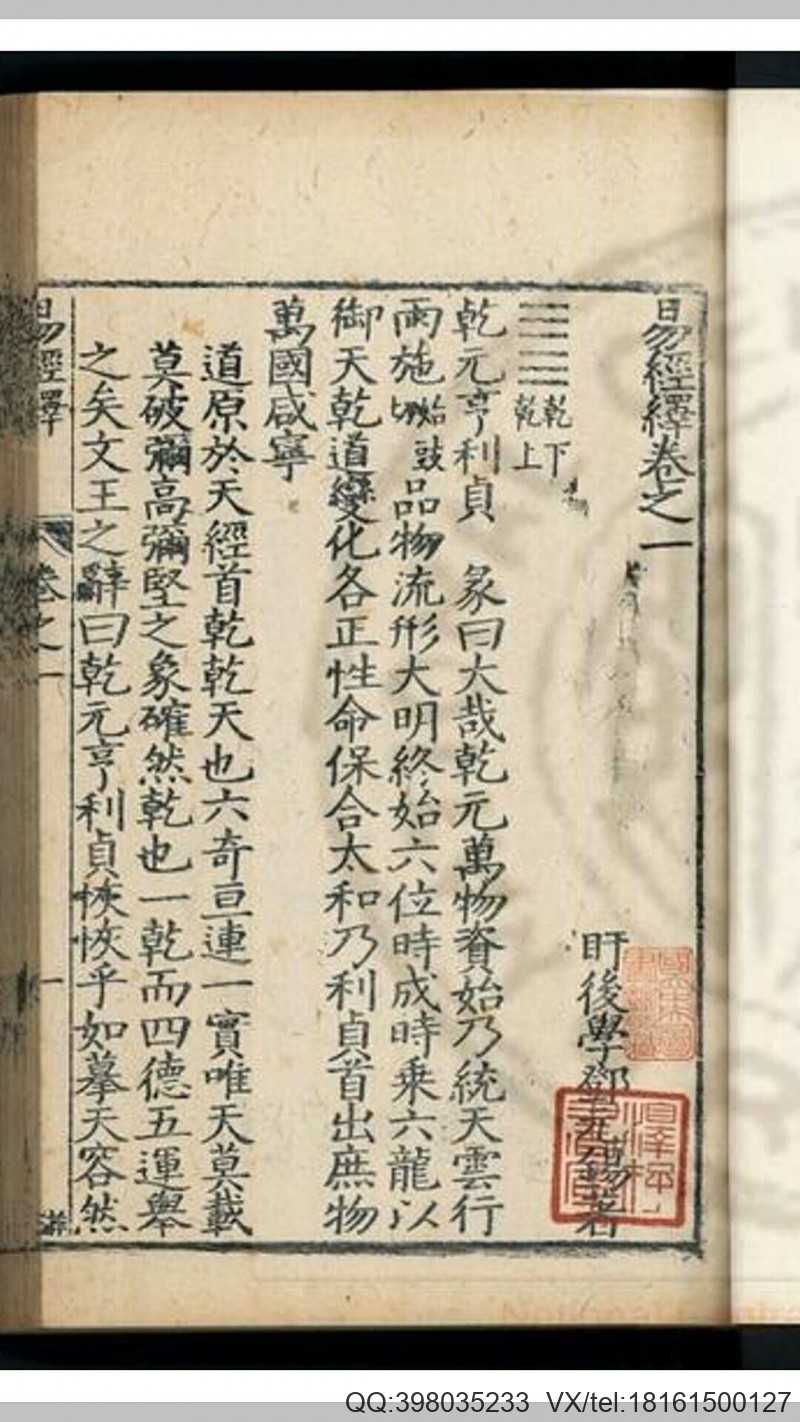 易經繹卷之一
盱後學鄧元錫著
乾下
乾上
乾元亨利貞 彖曰大哉乾元萬物資始乃統天雲行
雨施品物流形大明終始六位時成時乘六龍以
御天乾道變化各正性命保合太和乃利貞首出庶物
萬國咸寧
道原於天經首乾乾天也六奇亘連一實唯天莫載
莫破彌高彌堅之象確然乾也一乾而四德五運舉
之矣文王之辭曰乾元亨利貞恢恢乎如摹天容然
易經繹 卷之一 一
QQ:398035233 VX/tel:18161500127